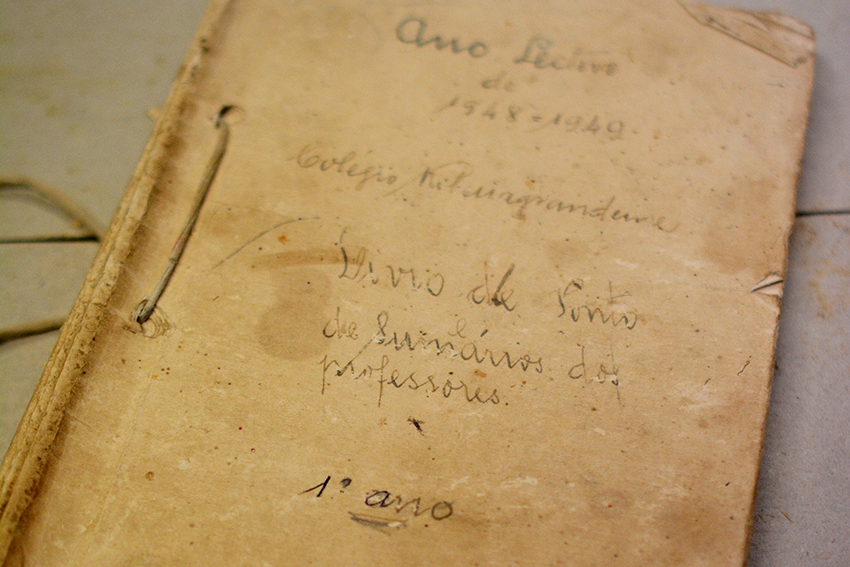 Ano Lectivo
de
1948-1949
Colégio Ribeiragrandense
Livro de Ponto
e
de Sumários dos
professores.
1º ano